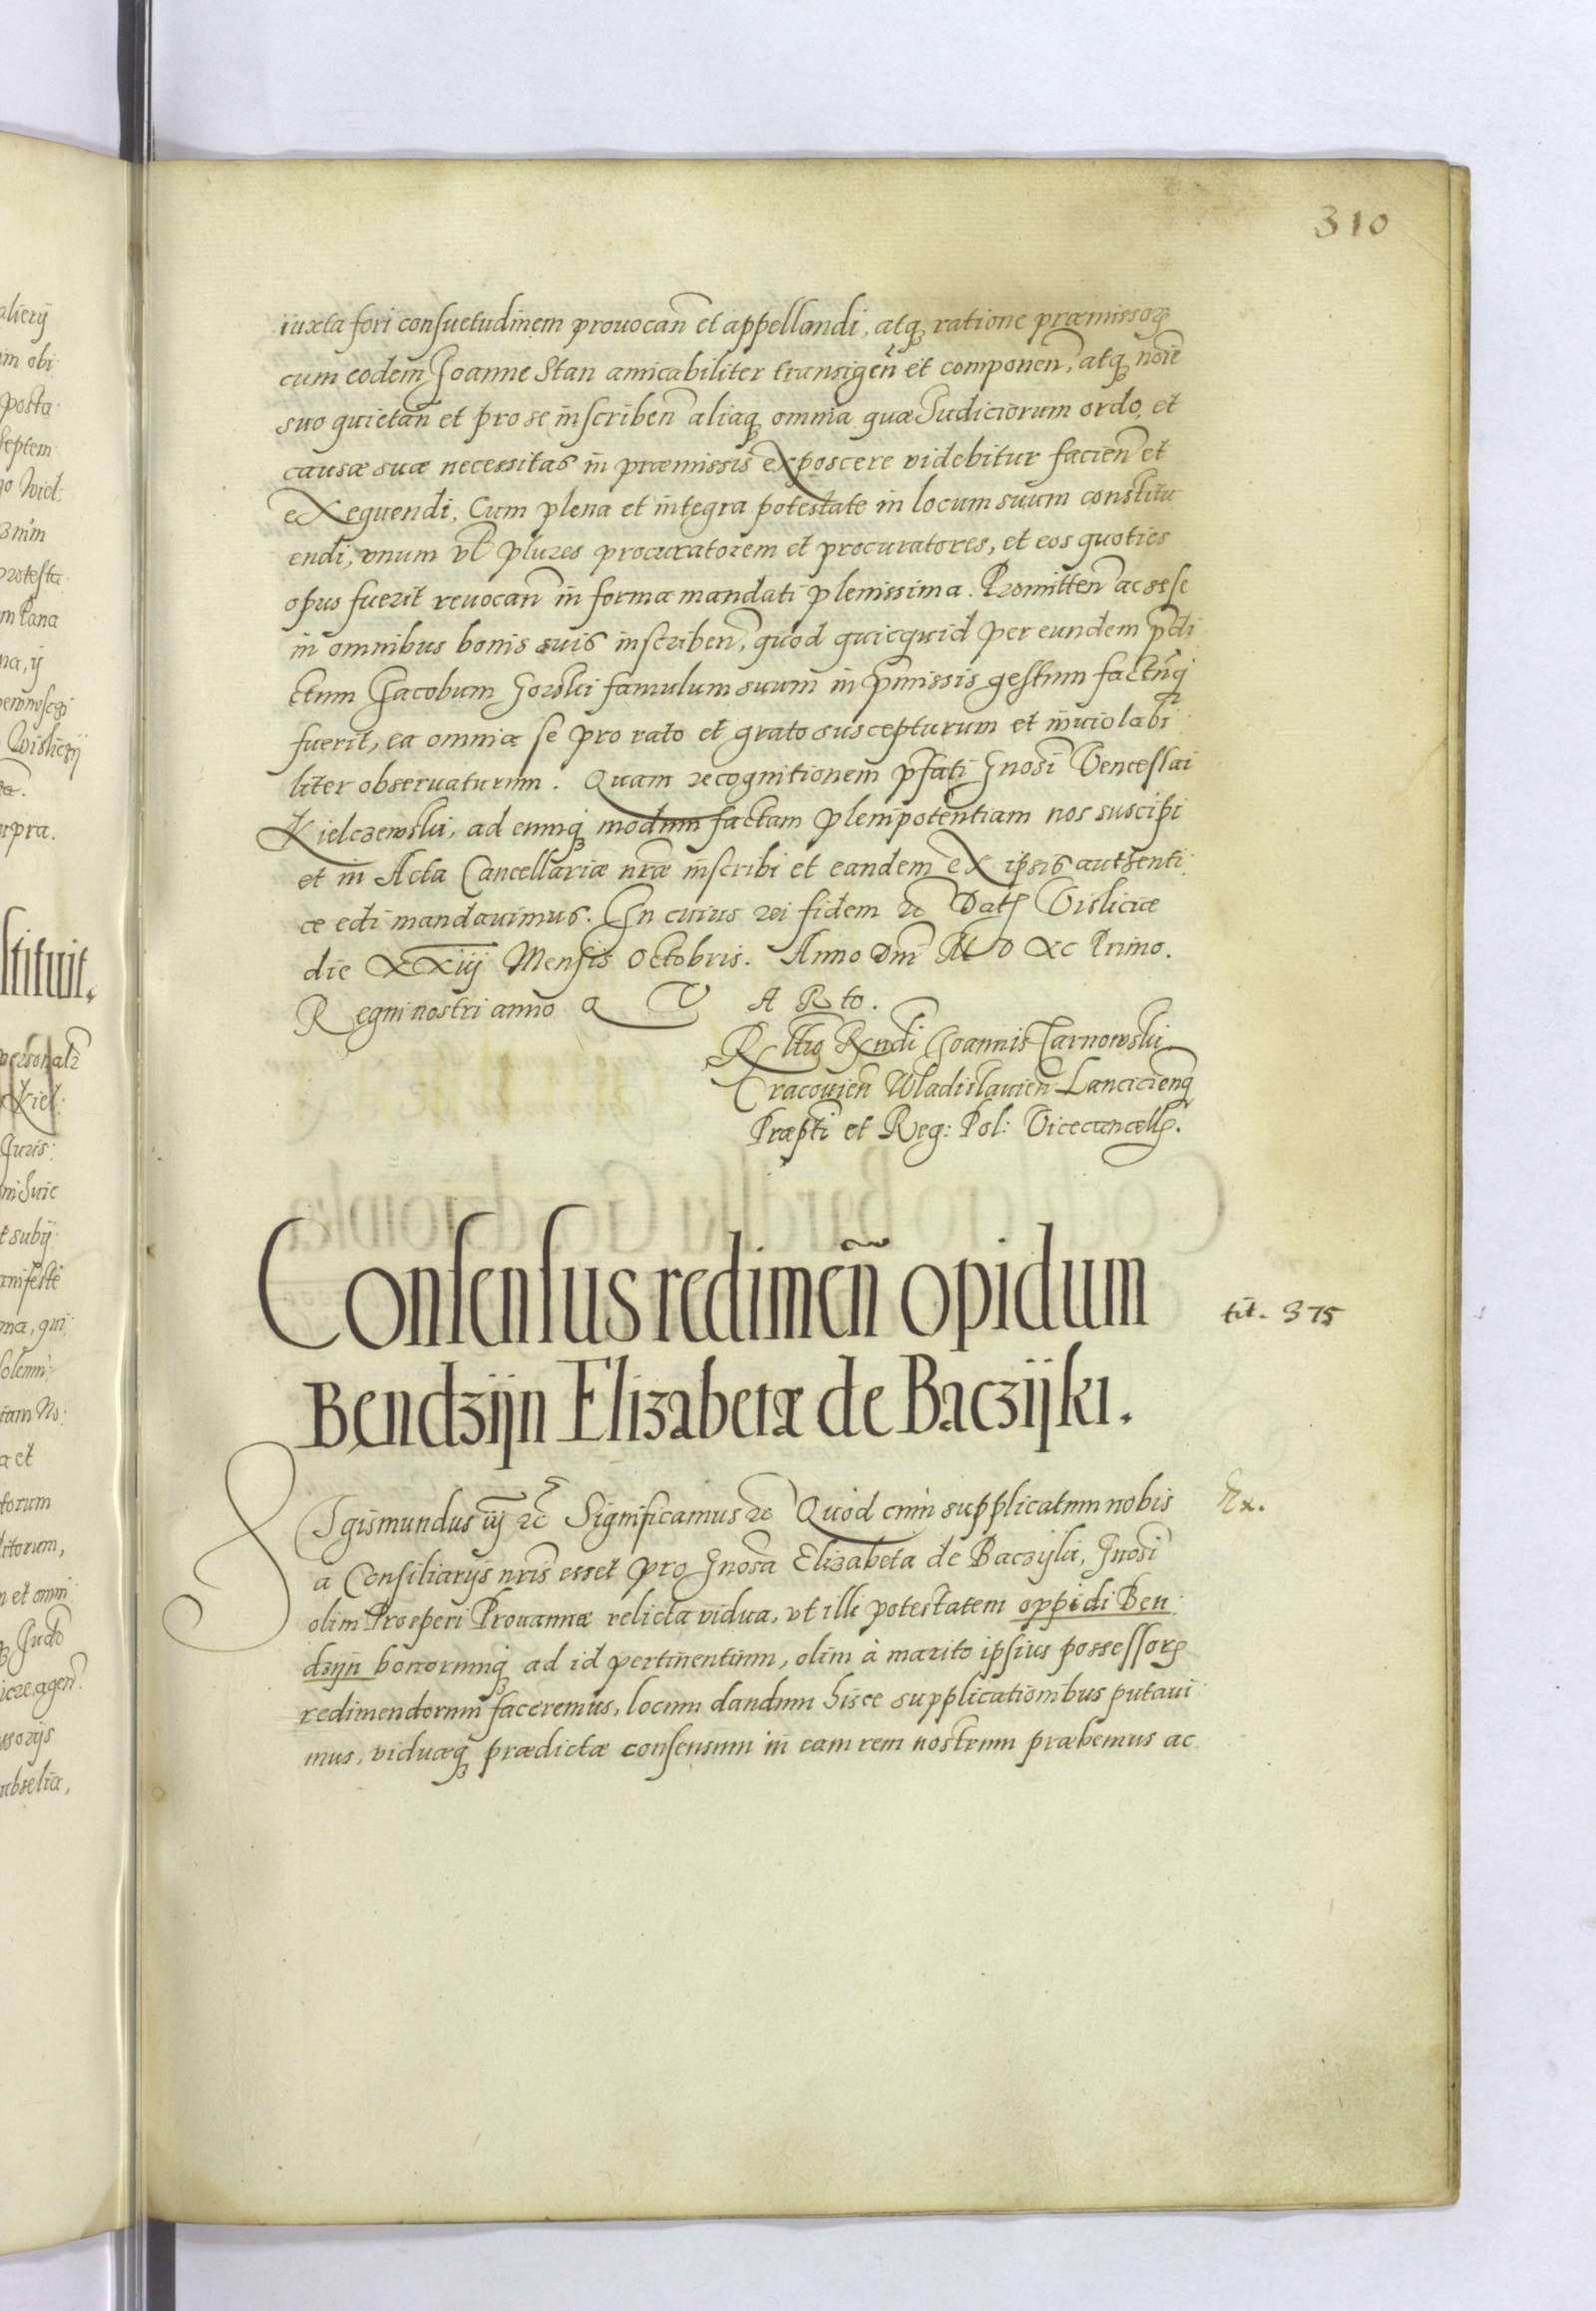 310
iuxta fori consuetudinem prouocan̄ et appellandi, atq3 ratione præmissor
cum eodem Joanne Stan amicabiliter transigen̄ et componen̄, atq3 noīe
suo quietan̄ et pro se inscriben̄ aliaq3 omnia quæ Judiciorum ordo, et
causæ suæ necessitas in præmissis exposcere videbitur facien̄ et
exequendi, Cum plena et integra potestate in locum suum constitu
endi, vnum vl plures procuratorem et procuratores, et eos quoties
opus fuerit reuocan̄ in forma mandati plenissima. Promitten̄ ac sese
in omnibus bonis suis inscriben̄, quod quicquid per eundem p̄di
ctum Jacobum Gorski famulum suum in p̄missis gestum factūq3
fuerit, ea omnia se pro rato et grato suscepturum et inuiolabi
liter obseruaturum. Quam recognitionem p̄fati Gnosi Venceslai
Kielczewski, ad eumq3 modum factam plenipotentiam nos suscipi
et in Acta Cancellariæ nr̄æ inscribi et eandem ex ipsis authenti
ce edi mandauimus. In cuius rei fidem &c Dat Visliciæ
die XXiij Mensis Octobris. Anno Dni M D XC Primo.
Regni nostri anno Q V A R to.
R Rndi Joannis Tarnowski
Cracouien̄ Wladislauien̄ Lancicien̄q3
Præpti et Reg: Pol: Vicecancell.
Consensus redimen̄ opidum
tit. 375
Bendzijn Elizabetæ de Baczijki.
Sigismundus iij &c Significamus &c Quod cum supplicatum nobis
Ex.
a Consiliarijs nr̄is esset pro Gnosa Elizabeta de Baczijki, Gnosi
olim Prosperi Prouannæ relicta vidua, vt illi potestatem oppidi Ben
dzijn bonorumq3 ad id pertinentium, olim à marito ipsius possessor
redimendorum faceremus, locum dandum hisce supplicationibus putaui
mus, viduæq3 prædictæ consensum in eam rem nostrum præbemus ac